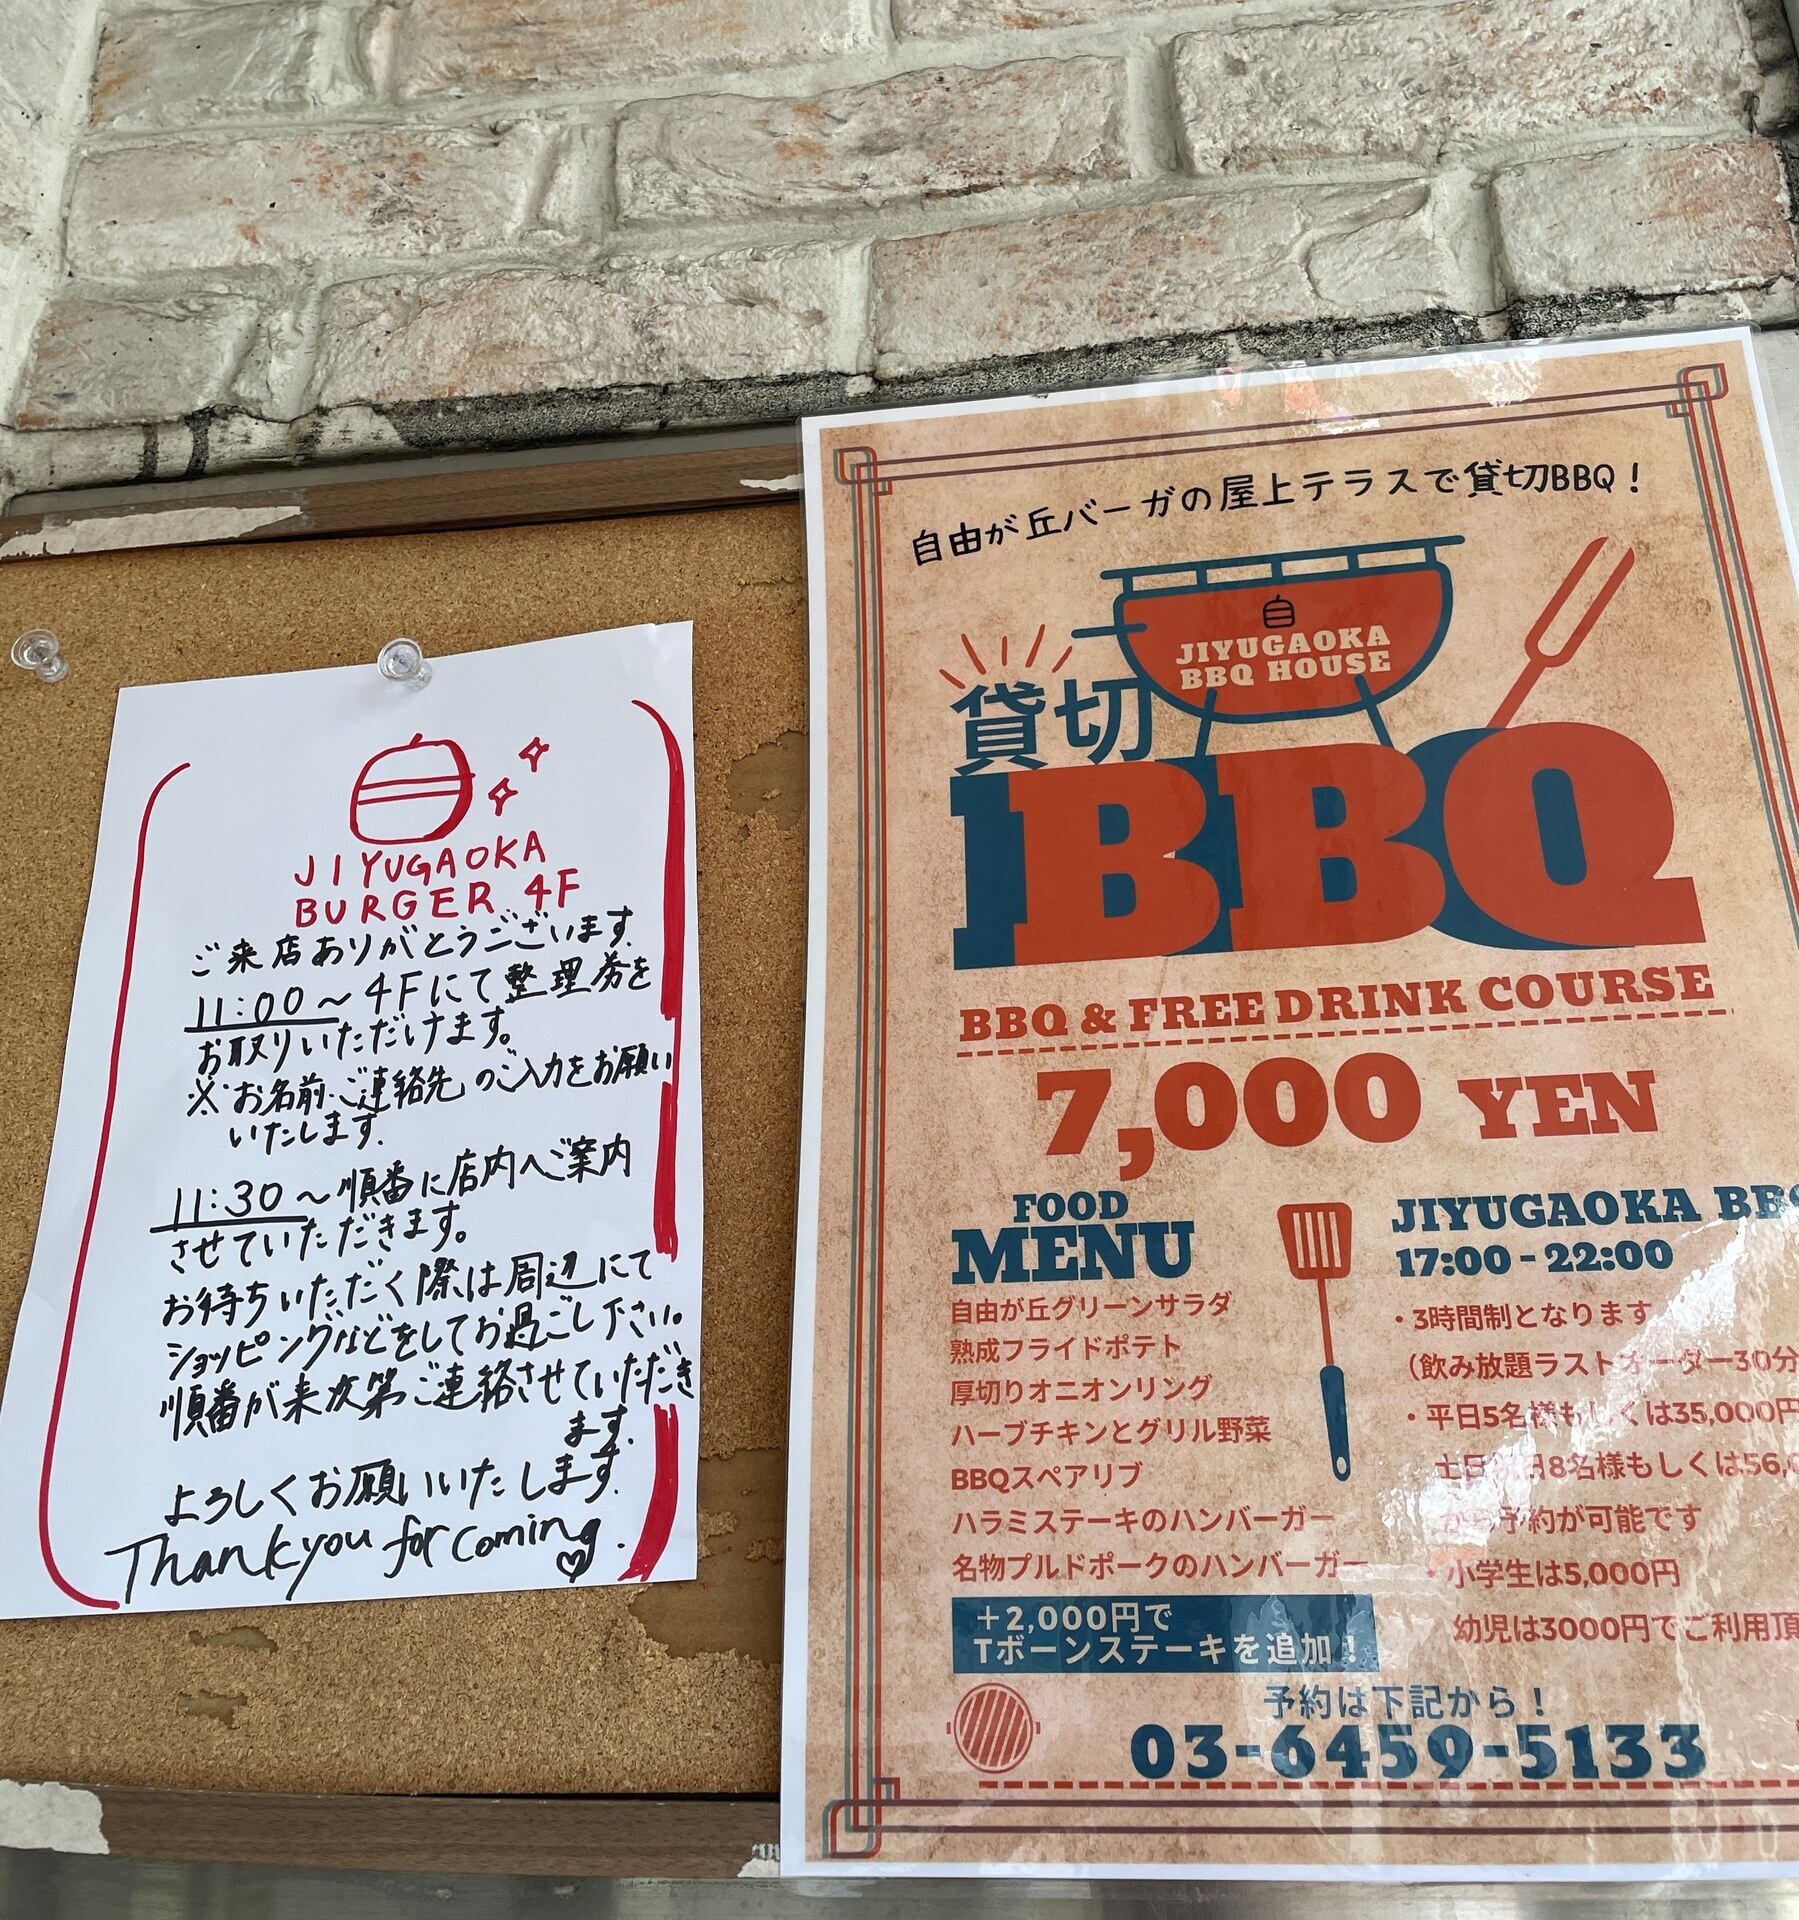 JIYUGAOKA
BURGER 4F
ご来店ありがとうございます。
11:00～4Fにて整理券を
お取りいただけます。
※お名前・ご連絡先のご入力をお願い
いたします。
11:30～順番に店内へご案内
させていただきます。
お待ちいただく際は周辺にて
ショッピングなどをしてお過ごし下さい。
順番が来次第ご連絡させていただき
ます。
よろしくお願いいたします。
Thank you for coming.
自由が丘バーガの屋上テラスで貸切BBQ！
自
JIYUGAOKA
BBQ HOUSE
貸切
BBQ
BBQ & FREE DRINK COURSE
7,000 YEN
FOOD
MENU
自由が丘グリーンサラダ
熟成フライドポテト
厚切りオニオンリング
ハーブチキンとグリル野菜
BBQスペアリブ
ハラミステーキのハンバーガー
名物プルドポークのハンバーガー
+2,000円で
Tボーンステーキを追加！
JIYUGAOKA BBQ
17:00 - 22:00
・3時間制となります
（飲み放題ラストオーダー30分
・平日5名様もしくは35,000円
土日祝日8名様もしくは56,0
から予約が可能です
・小学生は5,000円
幼児は3000円でご利用頂
予約は下記から！
03-6459-5133